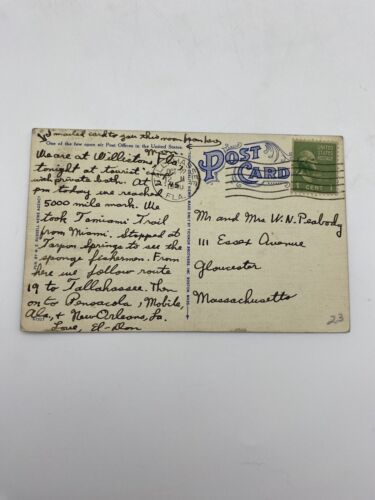 I mailed card to you this noon from here
One of the few open air Post Offices in the United States.
Mon.
We are at Williston, Fla
tonight at tourist camp
with private bath. At 2
pm today we reached
5000 mile mark. We
took Tamiami Trail
from Miami. Stopped at
Tarpon Springs to see the
sponge fishermen. From
here we follow route
19 to Tallahassee. Then
on to Pensacola, Mobile,
Ala., & New Orleans, La.
Love, El-Don
POST
CARD
FLA.
1 CENT 1
Mr and Mrs W. N. Peabody
111 Essex Avenue
Gloucester
Massachusetts
23